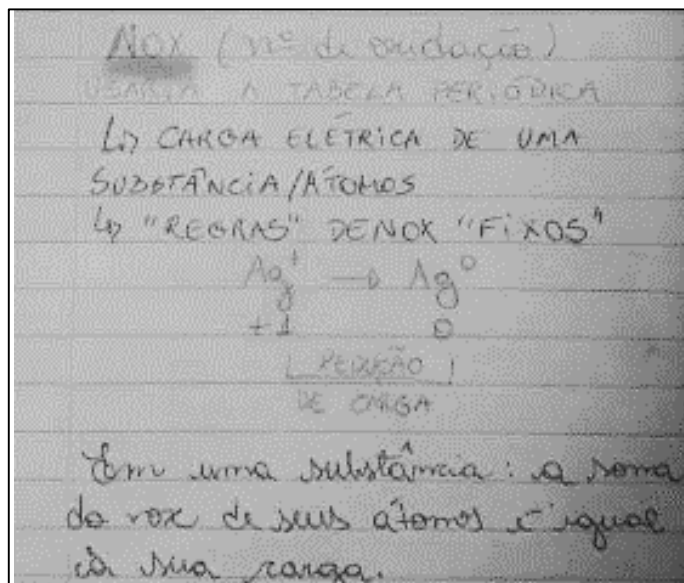 NOX (nº de oxidação)
USARIA A TABELA PERIÓDICA
↳ CARGA ELÉTRICA DE UMA
SUBSTÂNCIA/ÁTOMOS
↳ "REGRAS" DE NOX "FIXOS"
Ag⁺ → Ag⁰
+1 0
REDUÇÃO
DE CARGA
Em uma substância: a soma
do nox de seus átomos é igual
à sua carga.